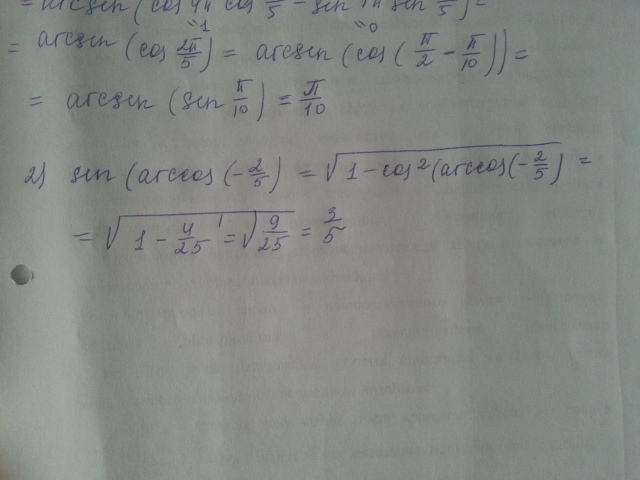 = arcsin (cos 4π cos π/5 - sin 4π sin π/5) =
"1 "0
= arcsin (cos 2π/5) = arcsin (cos (π/2 - π/10)) =
= arcsin (sin π/10) = π/10
2) sin (arccos (-2/5) = √(1-cos²(arccos(-2/5)) =
= √(1 - 4/25) = √(9/25) = 3/5